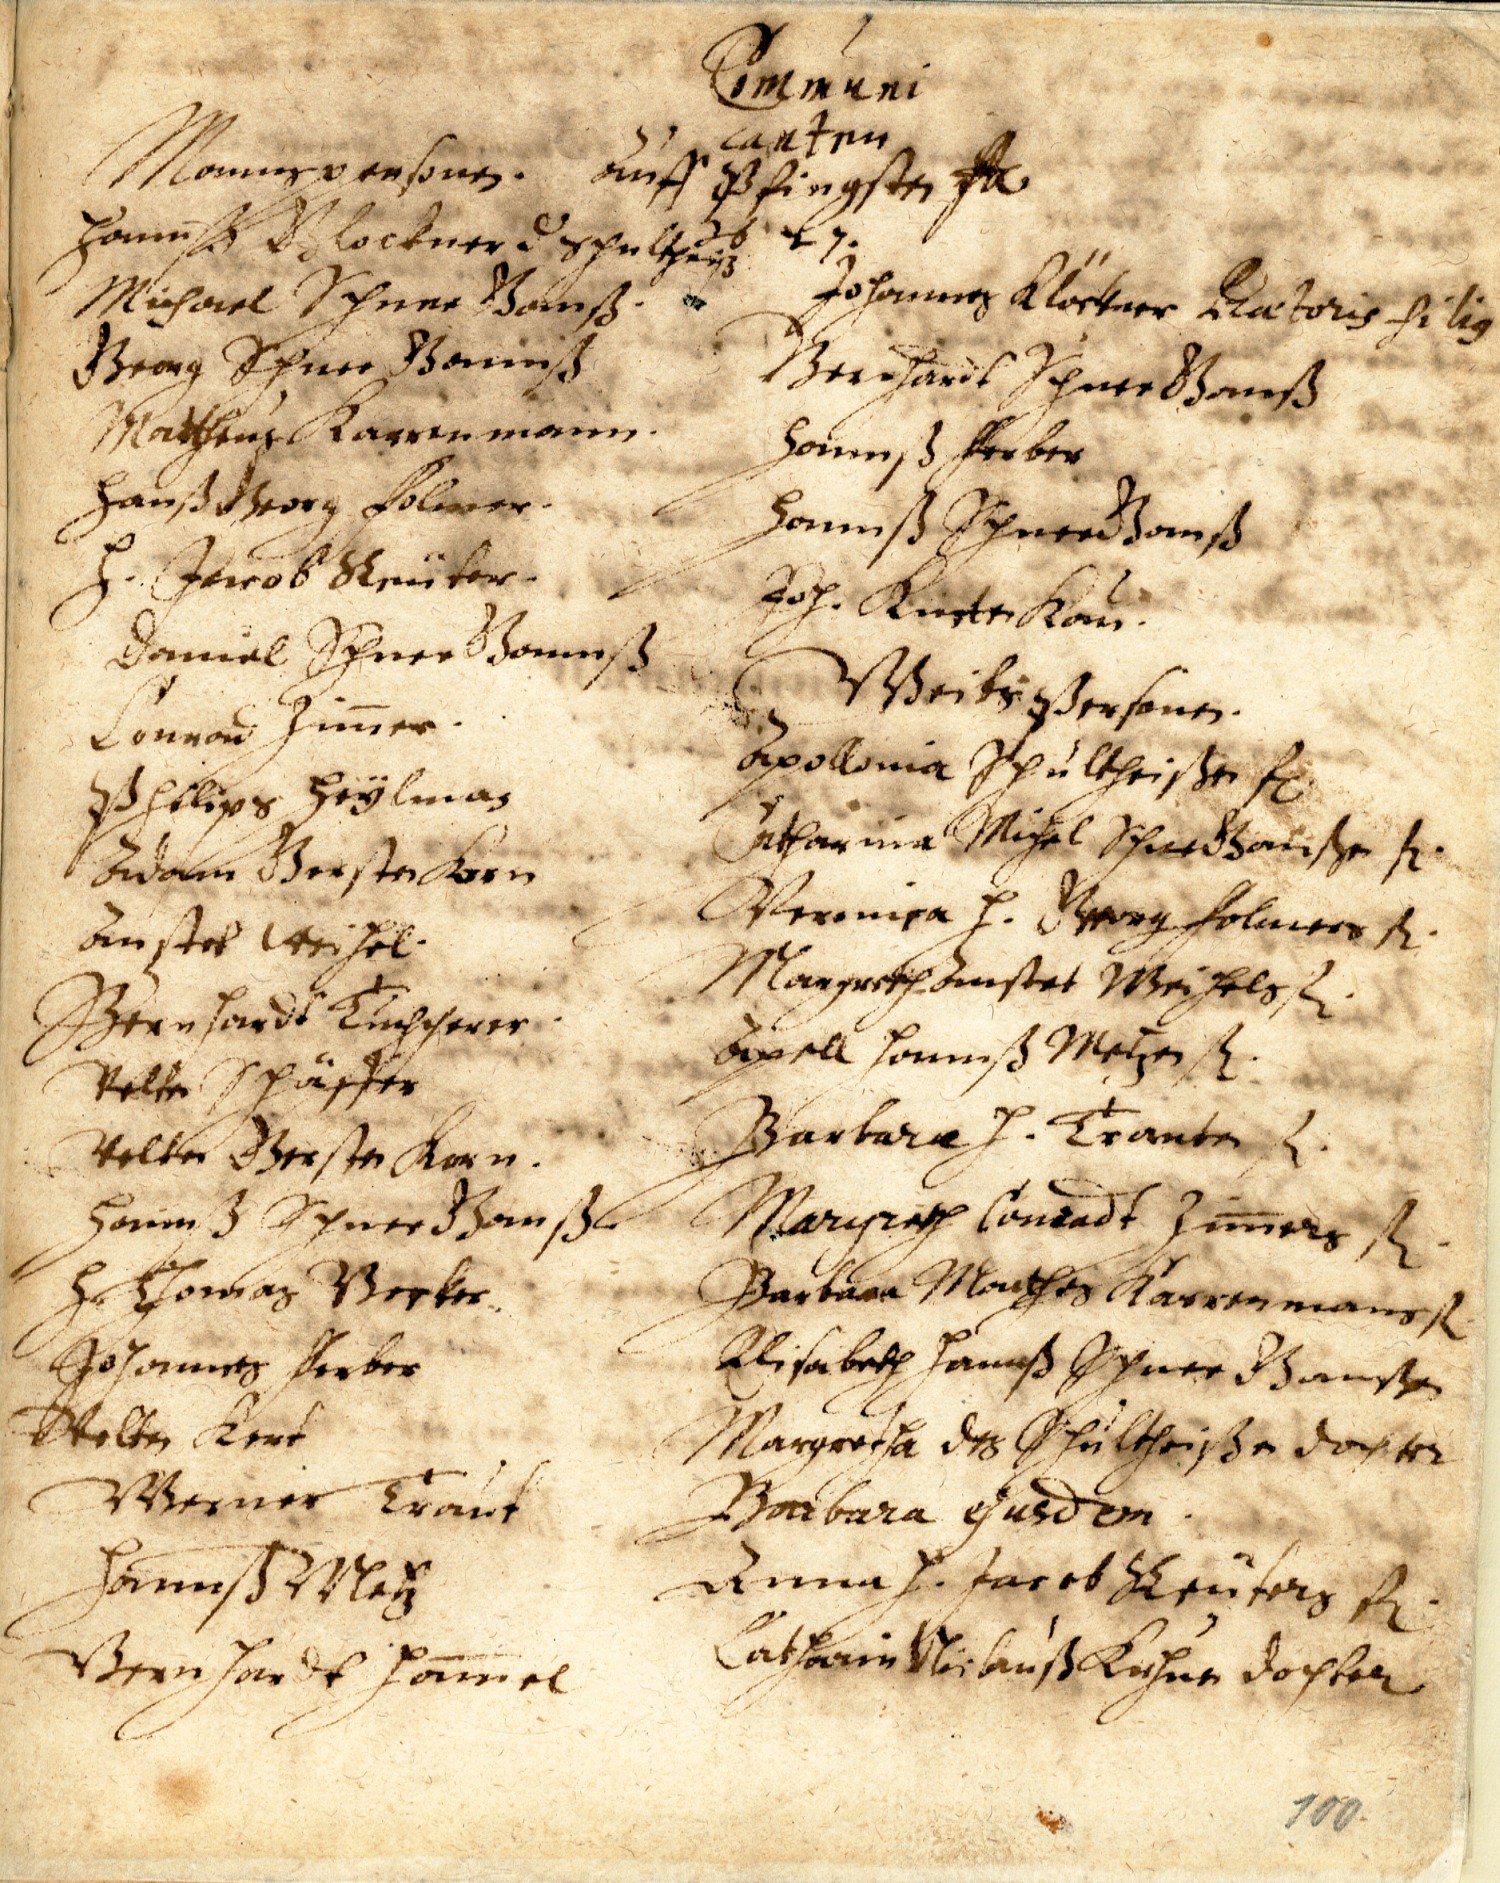 Communi
canten
Mannspersonen. Auff Pfingsten
Hannß Glöckner d Schultheiß
Michael Schnee Ganß.
Georg Schnee Ganß
Mattheus Karrenmann.
Hanß Georg Folmer.
H. Jacob Reüter.
Daniel Schnee Gannß
Conrad Zimer.
Philips Heÿlman
Adam Gersten Korn
Anstet Weihel.
Bernhardt Tuchscherer.
Velten Schäffer
Velten Gersten Korn.
Hannß Schnee Ganß.
H. Thomas Becker.
Johannes Ferber
Velten Kert
Werner Traut
Hannß Metz
Bernhardt Hamel
27.
Johannes Klöckner Praetoris filig
Bernhardt Schnee Ganß
Hannß Ferber
Hannß Schnee Ganß
Joh.
Weibs Personen.
Apollonia Schultheißen fr.
Catharina Michel Schnee Gansen fr.
Veronica H. Georg Folmers fr.
Margreth Anstet Weihels fr.
Apell Hannß Metzen fr.
Barbara H. Trauten fr.
Margreth Conradt Zimers fr.
Barbara Mathes Karrenmans fr.
Elisabeth Hannß Schnee Gansen
Margretha des Schultheißen dochter
Barbara ejusdem.
Anna H. Jacob Reüters fr.
Catharin Niclauß Kuhnen dochter
100